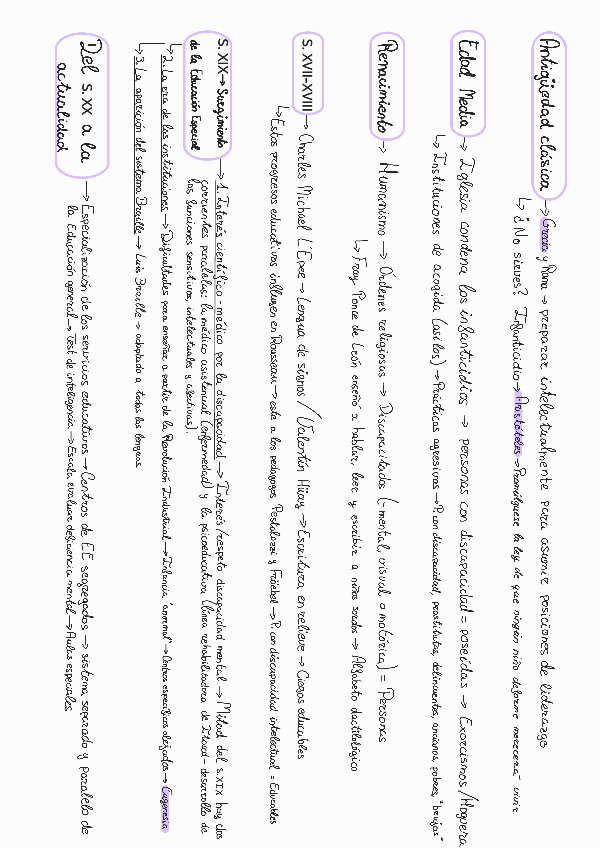 Antigüedad clásica → Grecia y Roma → preparar intelectualmente para asumir posiciones de liderazgo
↳ ¿No sirves? Infanticidio → Aristóteles → Promúlguese la ley de que ningún niño deforme merecerá vivir
Edad Media → Iglesia condena los infanticidios → personas con discapacidad = poseídas → Exorcismos/Hoguera
↳ Instituciones de acogida (asilos) → Prácticas agresivas → P. con discapacidad, prostitutas, delincuentes, ancianos, pobres, "brujas"
Renacimiento → Humanismo → Órdenes religiosas → Discapacitados (-mental, visual o motórica) = Personas
↳ Fray Ponce de León enseñó a hablar, leer y escribir a niños sordos → Alfabeto dactilológico
S. XVII-XVIII → Charles Michael L'Epee → Lengua de signos / Valentín Häuy → Escritura en relieve → Ciegos educables
↳ Estos progresos educativos influyen en Rousseau → este a los pedagogos Pestalozzi y Fröebel → P. con discapacidad intelectual = Educables
S. XIX → Surgimiento de la Educación Especial → 1. Interés científico-médico por la discapacidad → Interés/respeto discapacidad mental → Mitad del s.XIX hay dos
corrientes paralelas: la médico asistencial (enfermedad) y la psicoeducativa (línea rehabilitadora de Itard - desarrollo de
las funciones sensitivas, intelectuales y afectivas).
↳ 2. La era de las instituciones → Dificultades para enseñar a partir de la Revolución Industrial → Infancia "anormal" → Centros específicos alejados → Eugenesia
↳ 3. La aparición del sistema Braille → Luis Braille → adaptado a todas las lenguas.
Del s. XX a la actualidad → Especialización de los servicios educativos → Centros de EE segregados → sistema separado y paralelo de
la Educación general → Test de inteligencia → Escala evaluar deficiencia mental → Aulas especiales